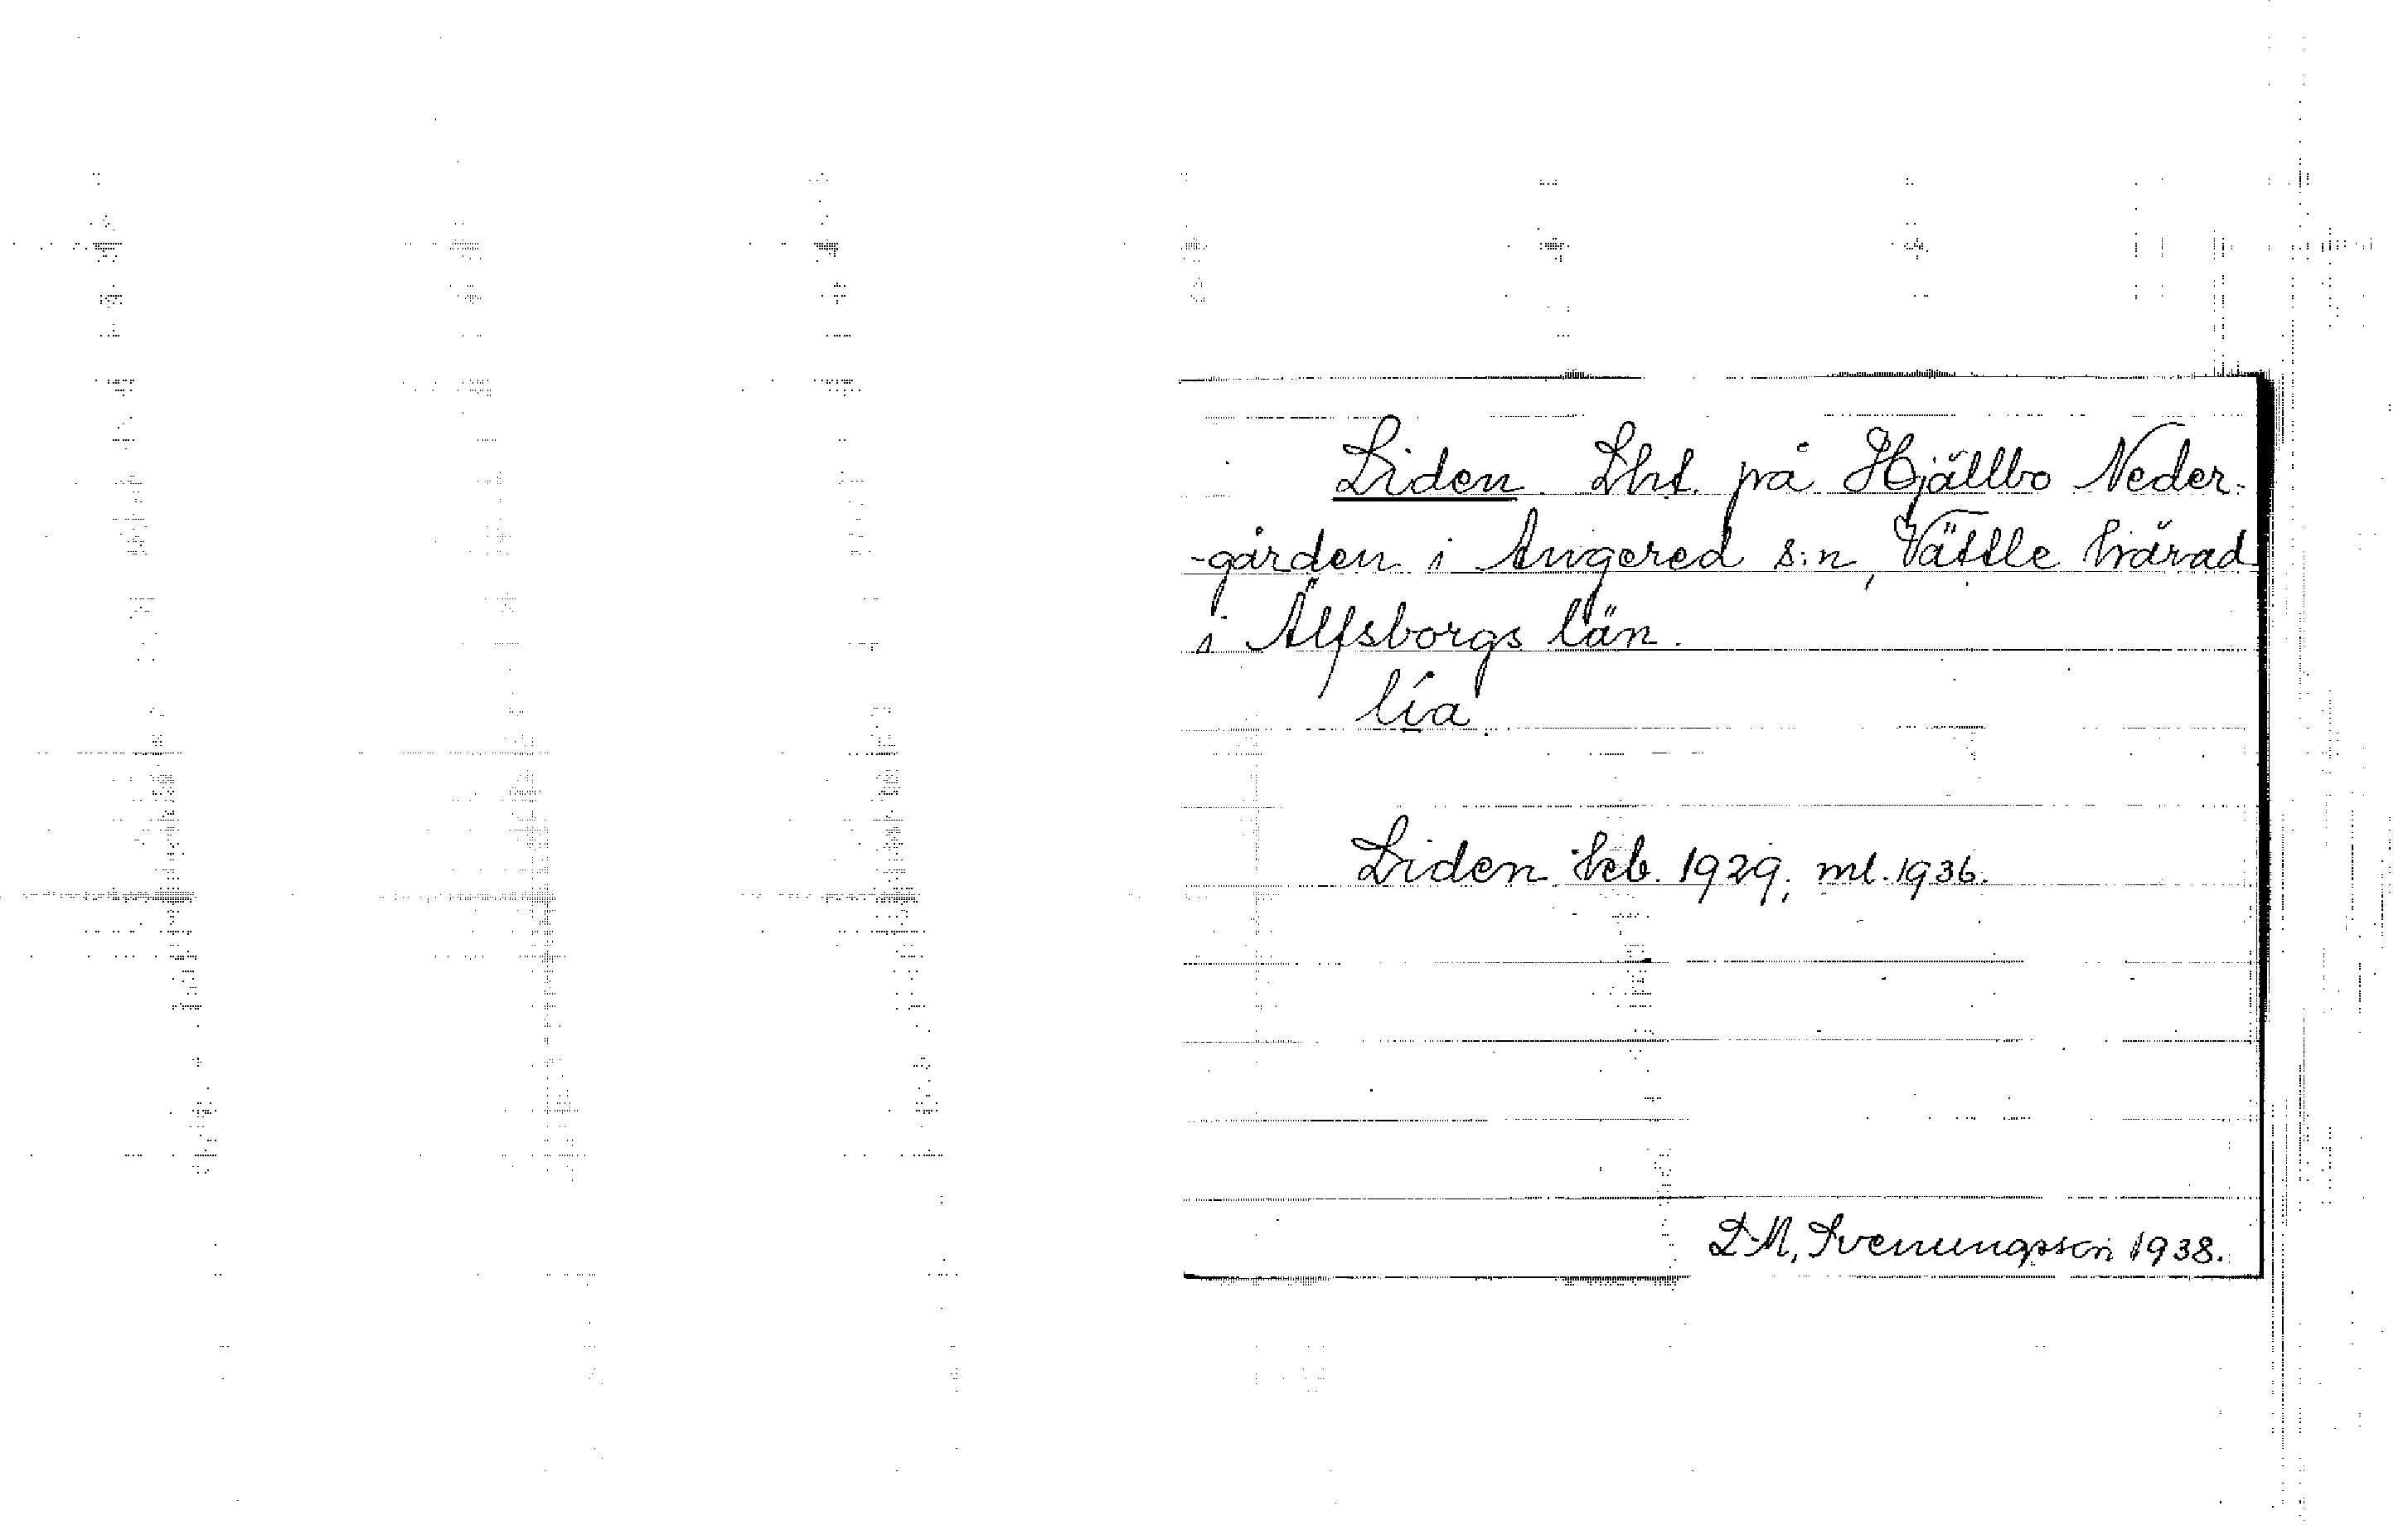 Liden. Lht. på Hjällbo Neder-
-gården i Angered s:n, Vättle härad
i Älfsborgs län.
lía
Liden hcb. 1929; ml. 1936.
L-M, Svenungsson 1938.